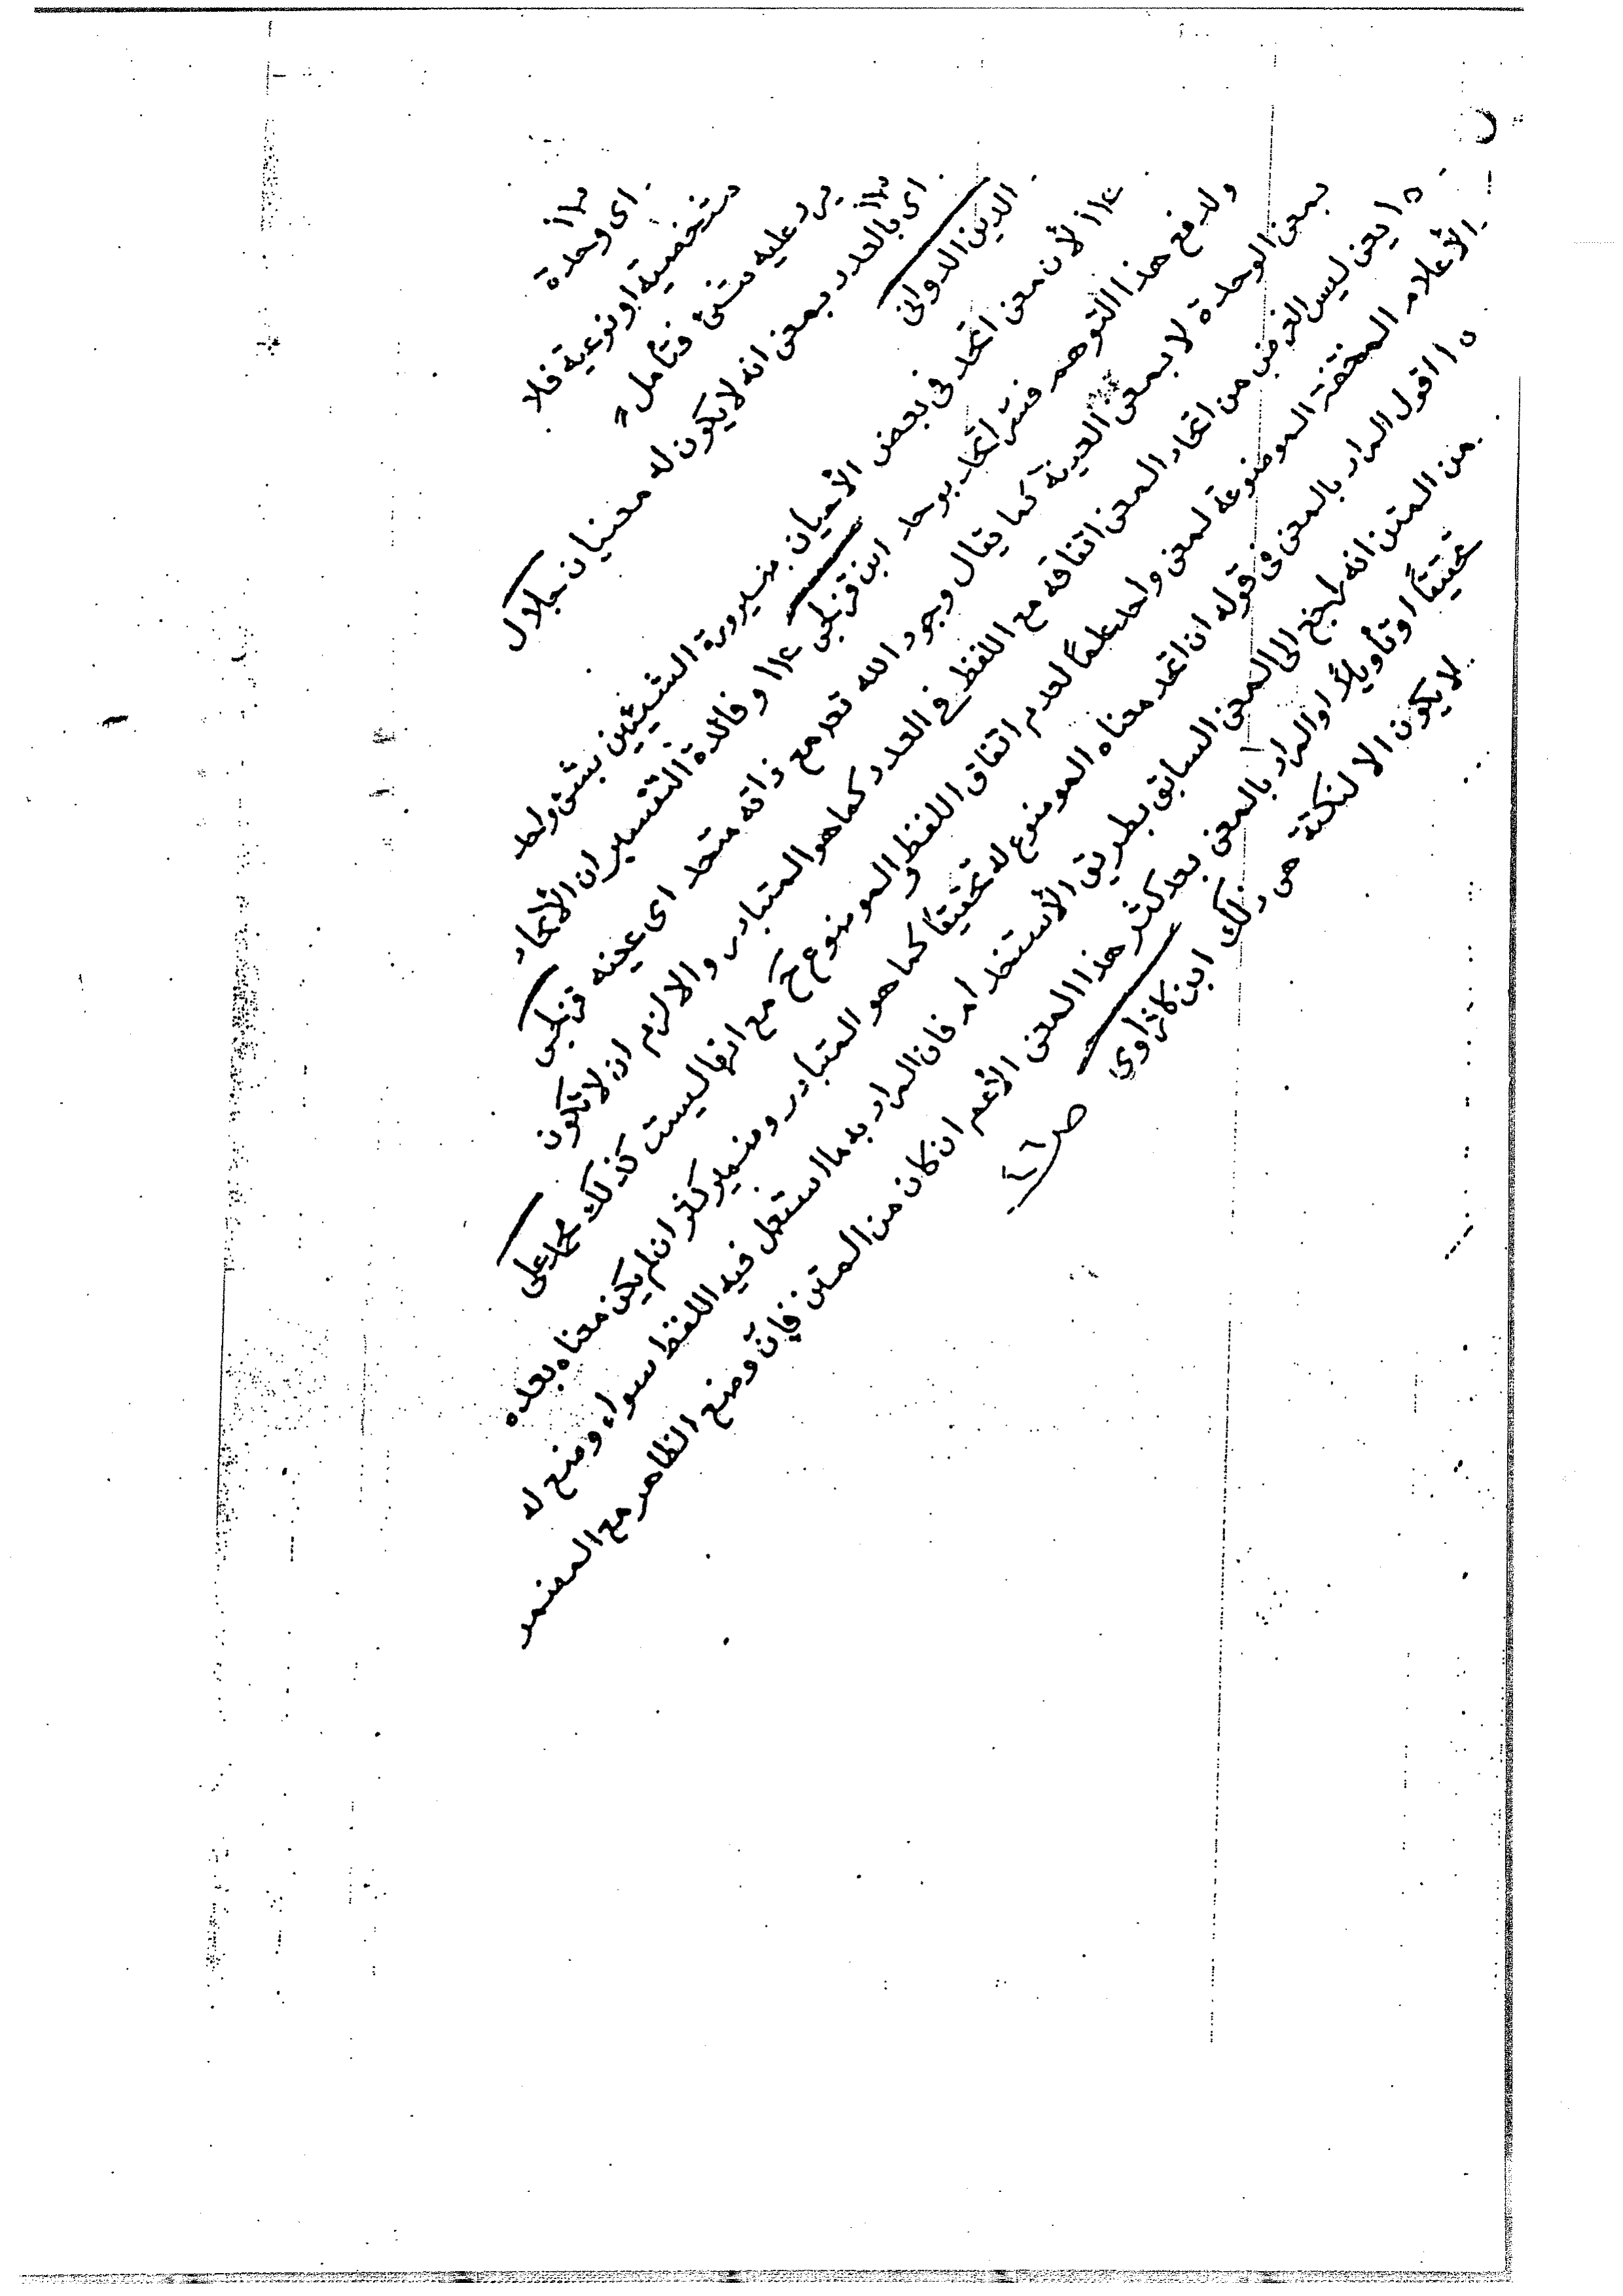 ١٣ اى وحدة
شخصية او نوعية فلا
يرد عليه شئ فتأمل
١٣ اى بالعدد بمعنى انه لا يكون له معنيان جلال
الدين الدوانى
١٤ لأن معنى اتحد فى بعض الأحيان بصيرورة الشيئين بشئ واحد
ولدفع هذا التوهم فسّر اتحد بوحد ابن قزلجى ١٤ وفائدة التفسير ان الأتحاد
بمعنى الوحدة لا بمعنى العينية كما يقال وجود الله تعـ مع ذاته متحد اى عينه قزلجى
١٥ يعنى ليس الغرض من اتحاد المعنى اتفاقه مع اللفظ فى العدد كما هو المتبادر والا لزم ان لا تكون
الأعلام المموضوعة لمعنى واحد علمًا لعدم اتفاق اللفظ والموضوع ح مع انها ليست كذلك محمد على
١٥ اقول المراد بالمعنى فى قوله ان اتحد معناه الموضوع له تحقيقًا كما هو المتبادر وضمير كثر ان لم يكن معناه بعده
من المتن انه راجع الى المعنى السابق بطريق الأستخدام فان المراد به ما استعمل فيه اللفظ سواء وضع له
تحقيقًا او تأويلًا او المراد بالمعنى بعد كثر هذا المعنى الأعم ان كان من المتن فإنّ وضع الظاهر مع المضمر
لا يكون الا لنكتة هى ذلك ابن كاژاوى
ص